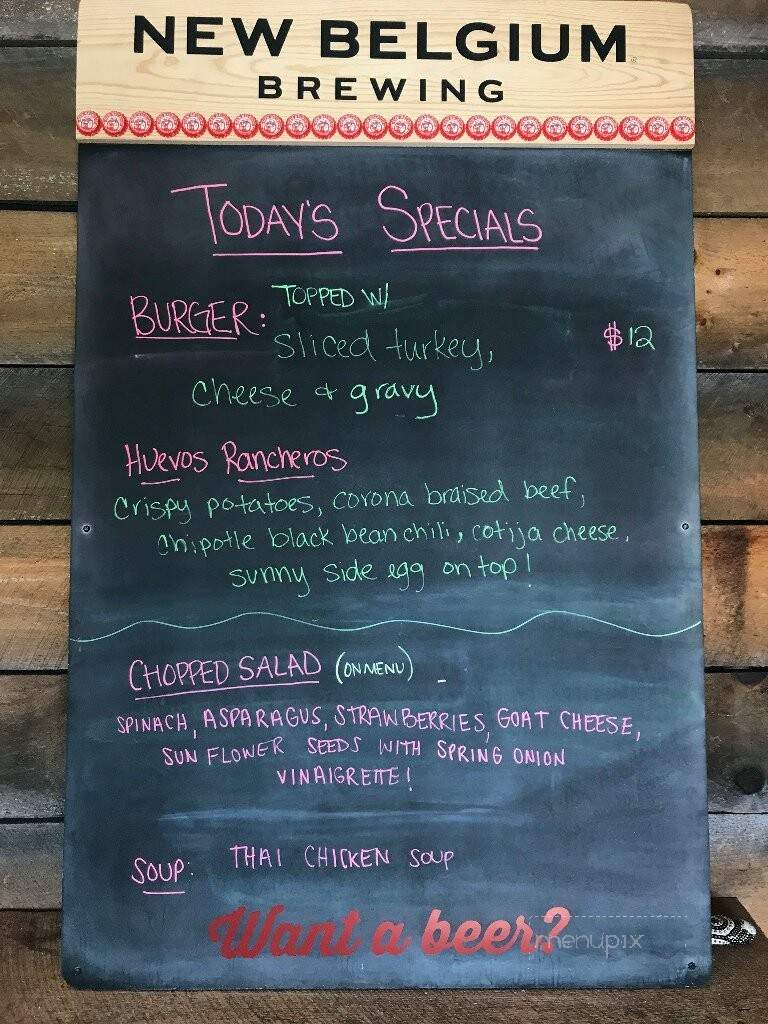 NEW BELGIUM
BREWING
TODAY'S SPECIALS
BURGER: TOPPED W/
sliced turkey, $12
cheese & gravy
Huevos Rancheros
crispy potatoes, corona braised beef,
chipotle black bean chili, cotija cheese,
sunny side egg on top!
CHOPPED SALAD (ON MENU) -
SPINACH, ASPARAGUS, STRAWBERRIES, GOAT CHEESE,
SUN FLOWER SEEDS WITH SPRING ONION
VINAIGRETTE!
SOUP: THAI CHICKEN SOUP
Want a beer?
menupix